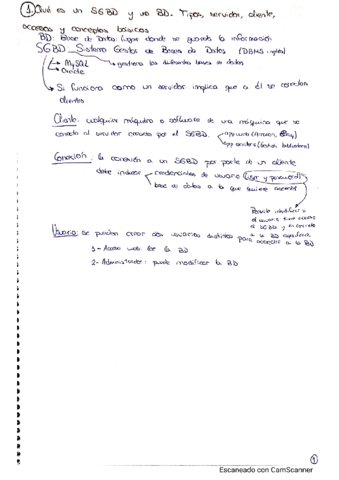 ① Qué es un SGBD y una BD. Tipos, servidor, cliente,
accesos y conceptos básicos
BD: Base de Datos: lugar donde se guarda la información
SGBD Sistema Gestor de Bases de Datos (DBMS inglés)
→ MySQL → gestiona las diferentes bases de datos
→ Oracle
→ Si funciona como un servidor implica que a él se conectan
clientes
Cliente: cualquier máquina o software de una máquina que se
conecta al servidor creado por el SGBD. → app web (Amazon, Ebay)
app escritorio (Gestión biblioteca)
Conexión: la conexión a un SGBD por parte de un cliente
debe indicar → credenciales de usuario (user y password)
base de datos a la que quiere acceder
Permite identificar si
el usuario tiene acceso
al SGBD y en concreto
a la BD específica
Usuario: se pueden crear dos usuarios distintos para acceder a la BD
1- Acceso web: leer la BD
2- Administrador: puede modificar la BD
①
Escaneado con CamScanner